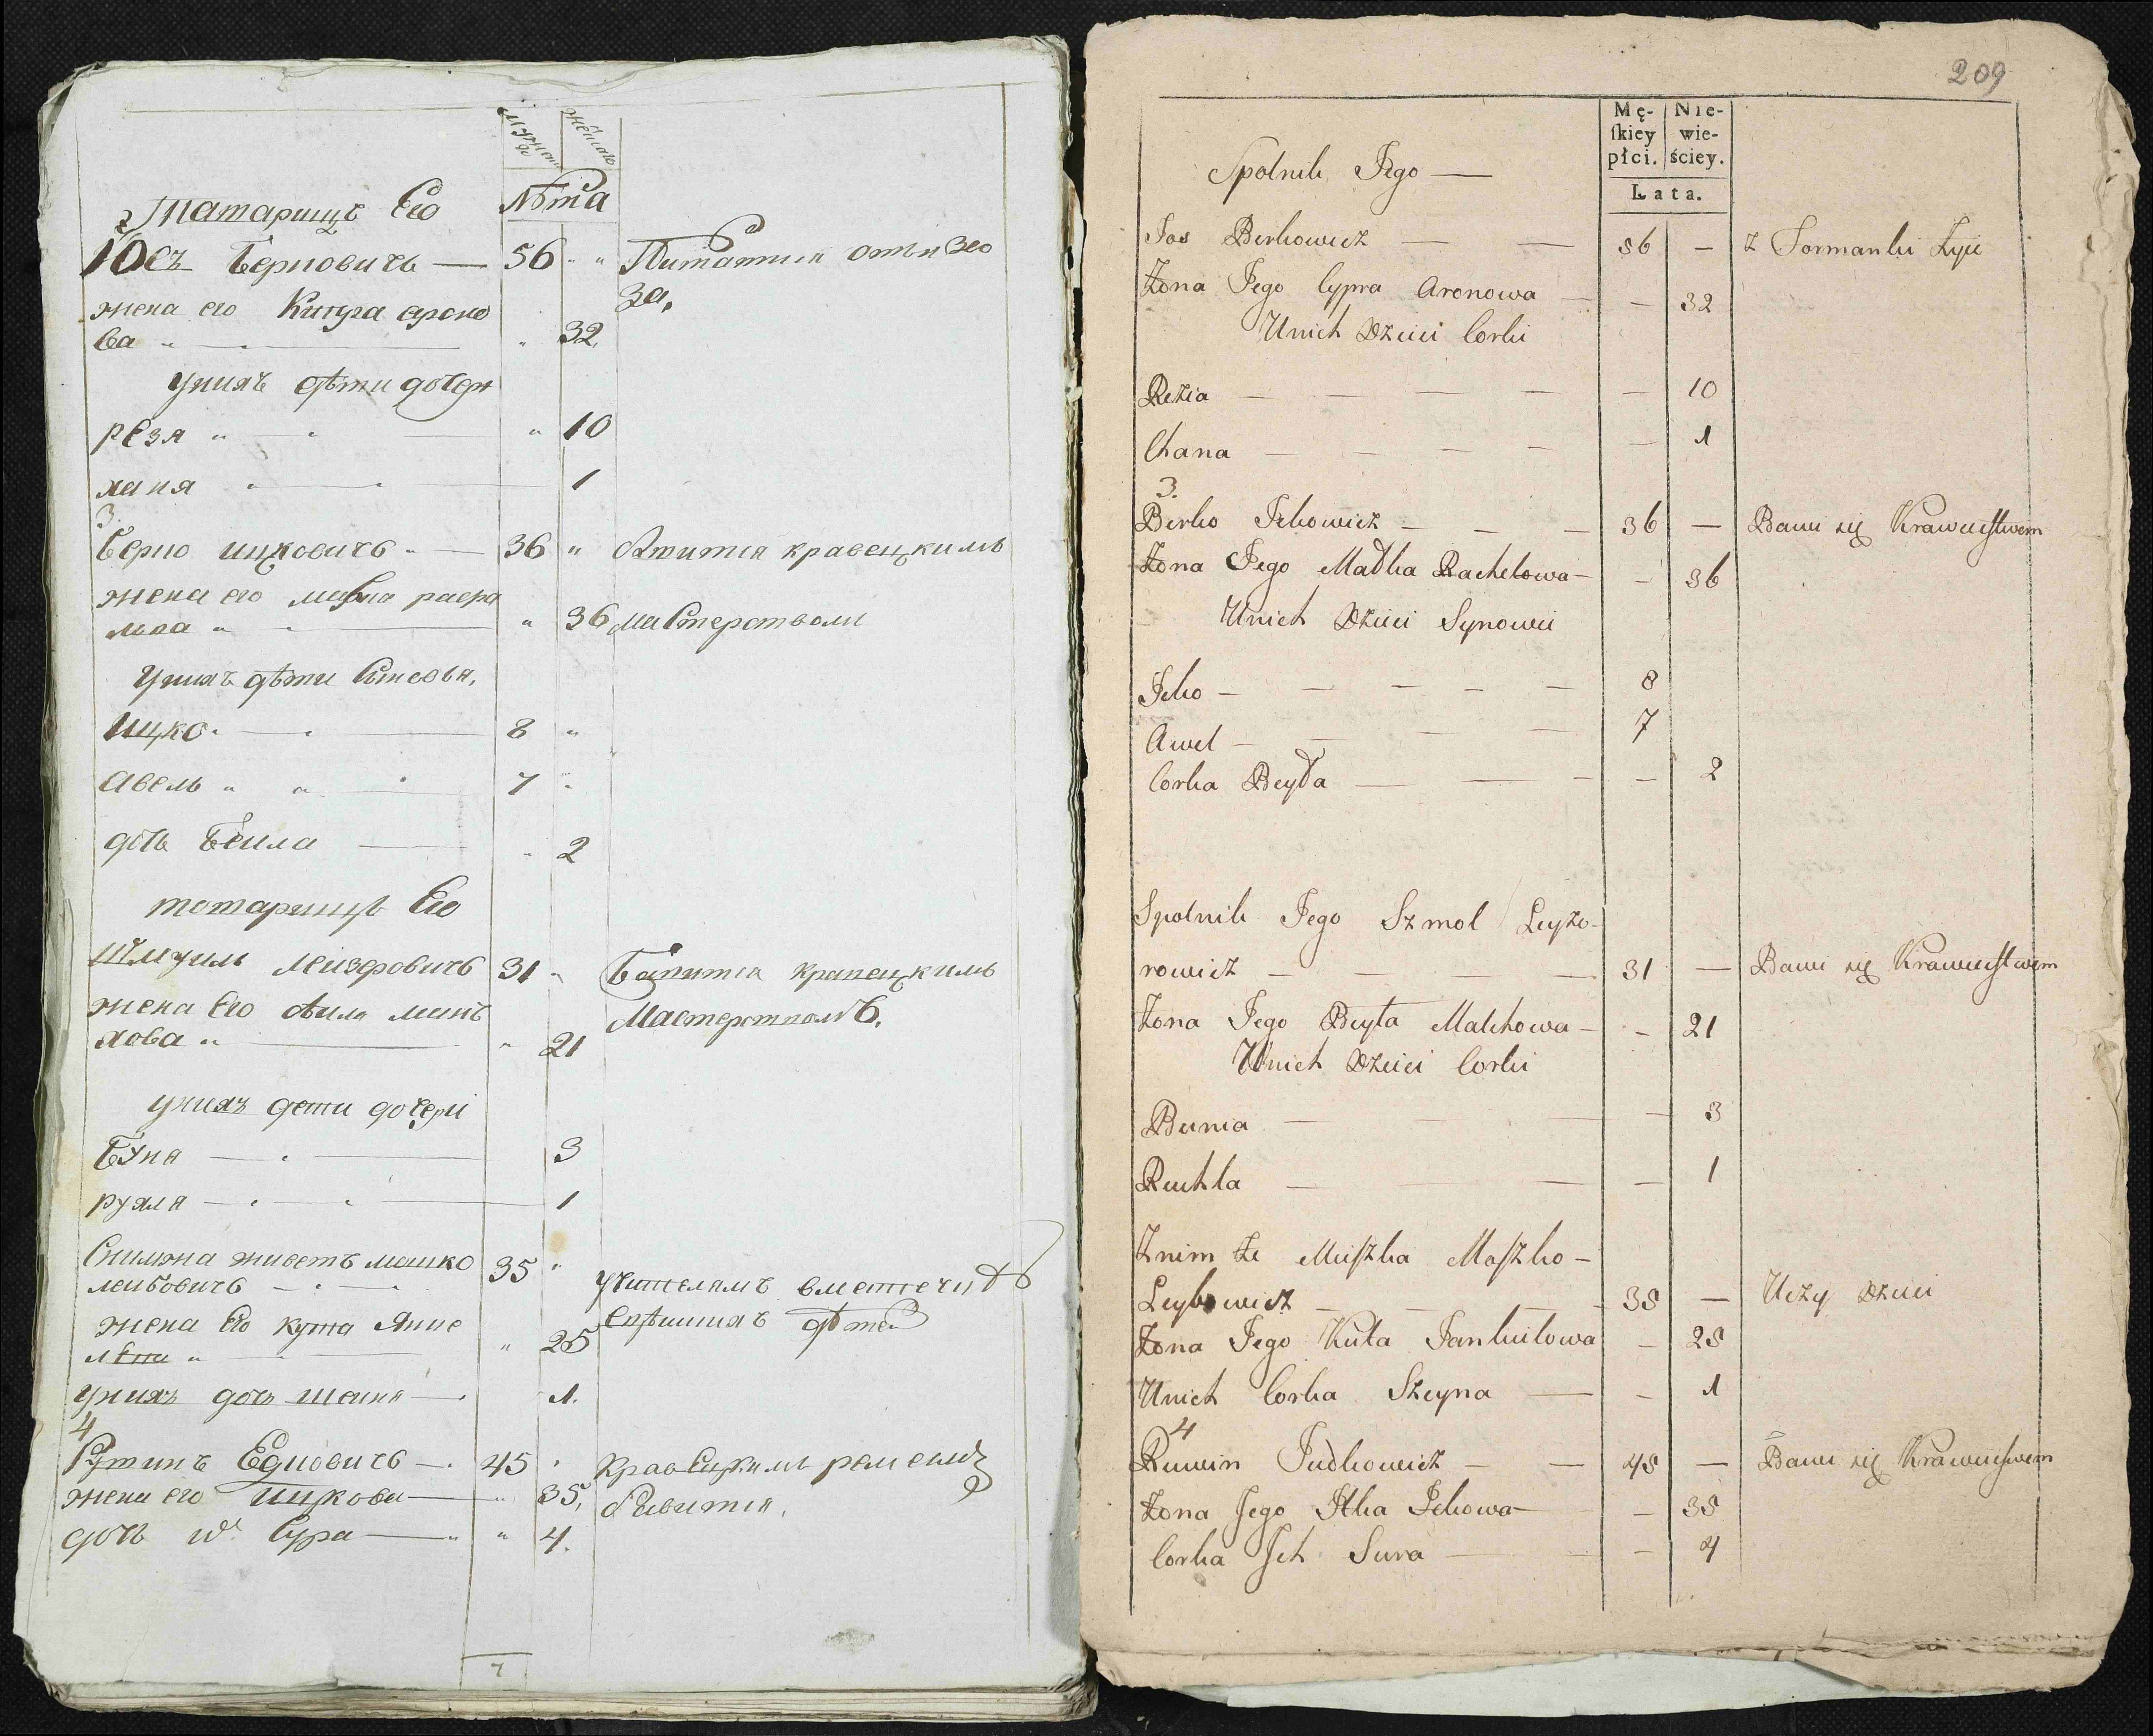 мужеска
женска
Лѣта
2 Татарищъ Его
Юсъ Берковичъ — 56 " " Питается отъ изво
жена его Ципра ароно за,
ва " — " 32
унихъ дѣти дочери
рѣзя " — " 10
хаия — 1
3.
Берко ицковичъ — 36 " кравецкимъ
жена его малка рахе
льва " — " 36 мастерствомъ
унихъ дѣти Синовя,
ицко — 8 "
авель " " 7 "
дочь Беила — 2
тотарищъ Его
Шмуиль леизоровичъ 31 " Бавится кравецкимъ
жена Его беила малъ Мастерствомъ.
хова " — " 21
унихъ дети дочери
Буня — 3
рухля — 1
Снимжа живетъ мошко 35 "
леибовичъ — учителямъ вместечку
жена Его кута Янке " 25 дѣтей
л
унихъ дочь шеина — 1.
4
Рувинъ Юдковичъ — 45 " кравецкимъ ремесл
жена его ицкова — " 35, бавится.
дочь их Сура — " 4.
209
Mę-ſkiey płci. | Nie-wie-ściey.
Lata.
Spolnik Jego —
Jos Berkowicz — — 56 — z Formanki żyie
Żona Jego Cypra Aronowa — — 32
Unich Dzieci Corki
Rezia — — — — — 10
Chana — — — — — 1
3.
Berko Ickowicz — — — 36 — Bawi się Krawiectwem
Żona Jego Małka Rachelowa — — 36
Unich Dzieci Synowie
Icko — — — — — 8
Awel — — — — 7
Corka Beyła — — — — 2
Spolnik Jego Szmol Leyzo-
rowicz — — — — 31 — Bawi się Krawiectwem
Żona Jego Beyła Malchowa — — 21
Unich Dzieci Corki
Bunia — — — — 3
Ruchla — — — — 1
Znim że Mieſzka Moſzko —
Leybowicz — — — 35 — Uczy Dzieci
Żona Jego Kuta Jankielowa — 25
Unich Corka Szeyna — — 1
4
Ruwin Judkowicz — — 45 — Bawi się Krawiectwem
Żona Jego Itka Ickowa — — 35
Corka Ich Sura — — — 4